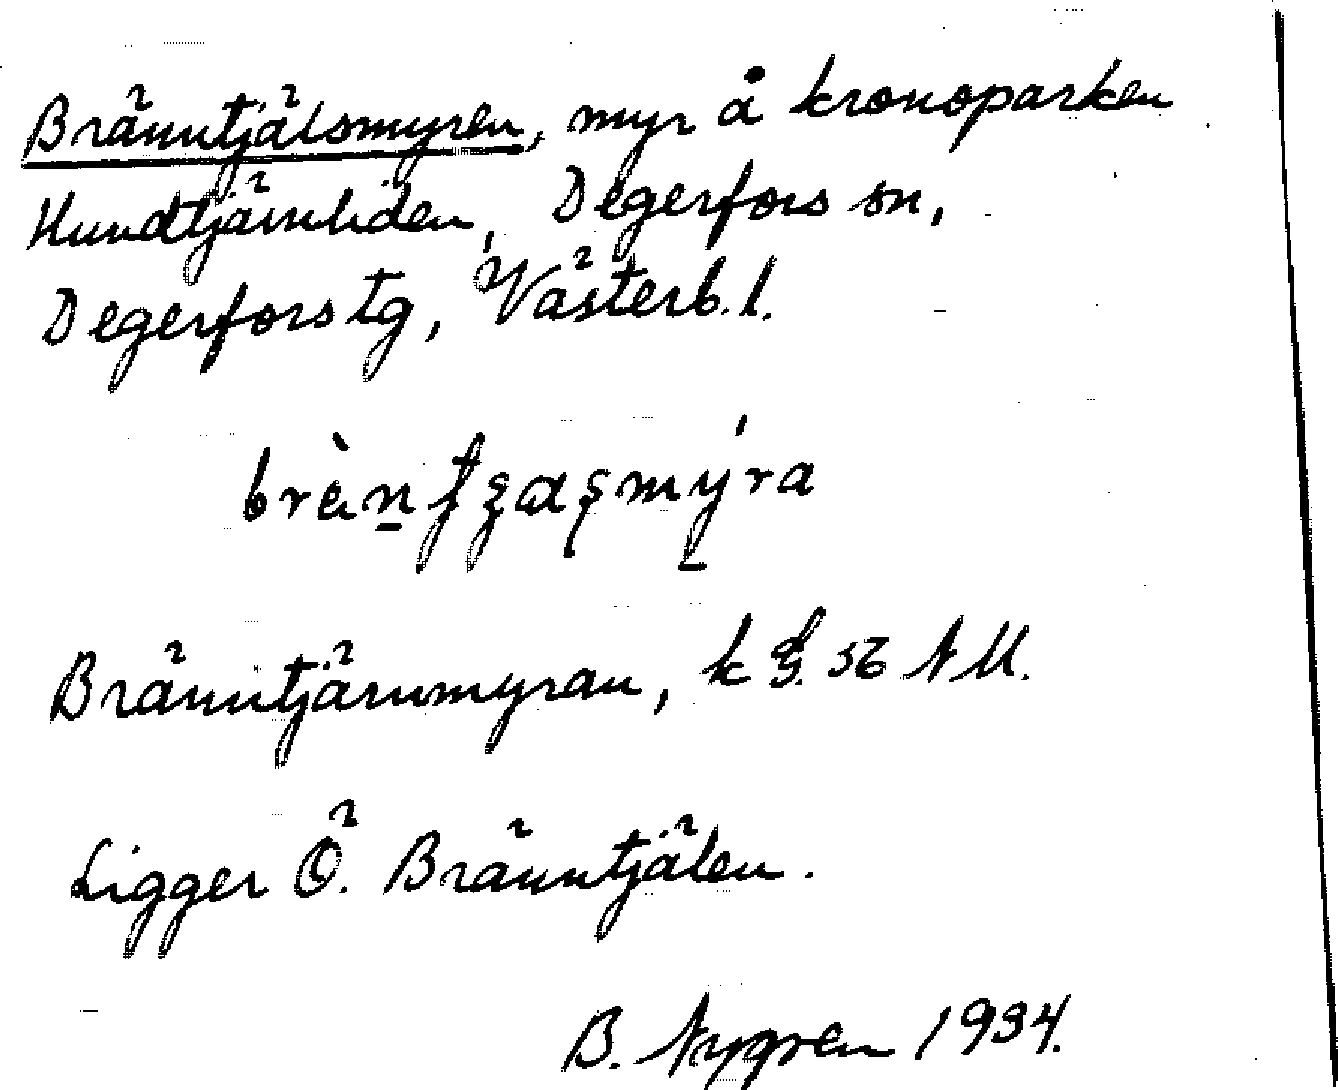 Bränntjälsmyren, myr å kronoparken
Hundtjärnliden, Degerfors sn,
Degerfors tg, Västerb. l.
Bränntjärnmyran, k 56 NM.
Ligger Ö. Bränntjälen.
B. Nygren 1934.